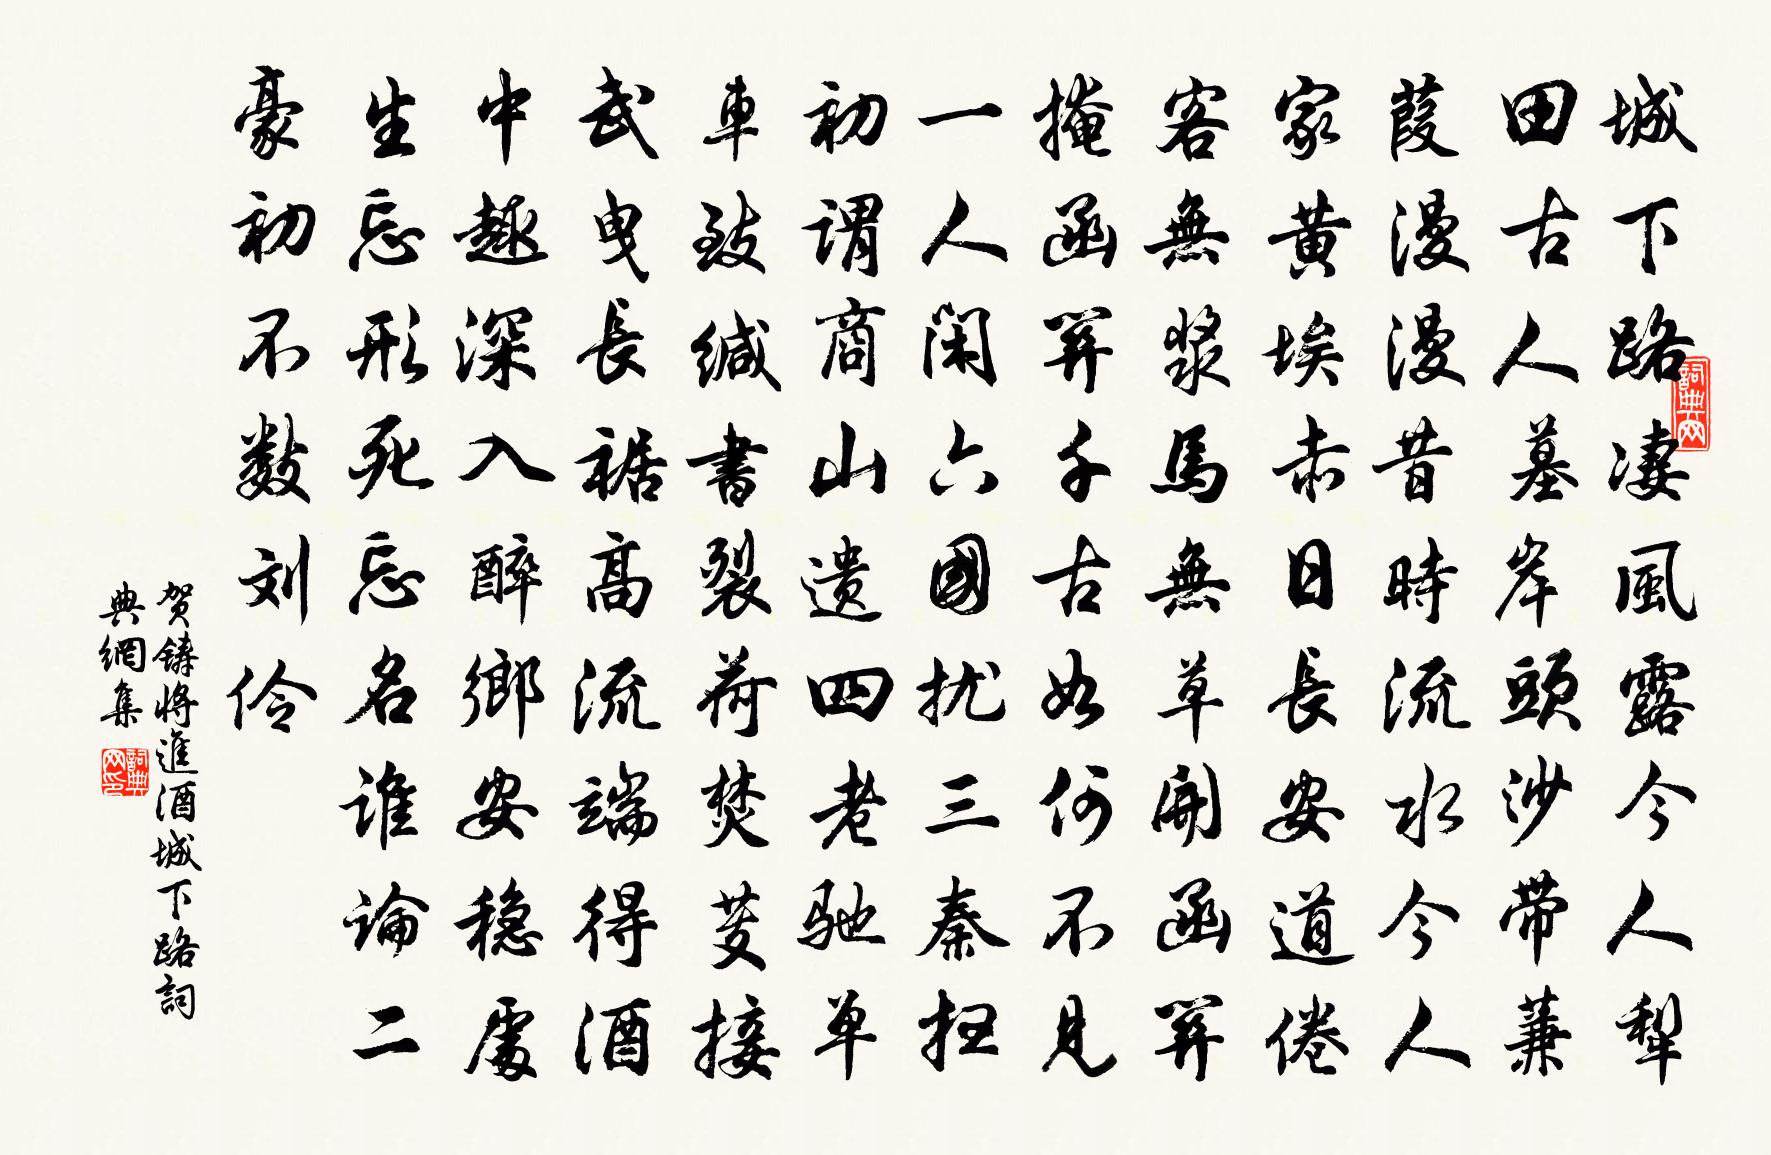 城下路凄風露今人犁
田古人墓岸頭沙帶蒹
葭漫漫昔時流水今人
家黃埃赤日長安道倦
客無漿馬無草開函関
掩函関千古如何不見
一人閑六國扰三秦扫
初謂商山遗四老驰单
車致缄書裂荷焚芰接
武曳長裾高流端得酒
中趣深入醉鄉安穏處
生忘形死忘名谁論二
豪初不数刘伶
贺鑄將進酒城下路詞
典網集
詞典网
詞典网印